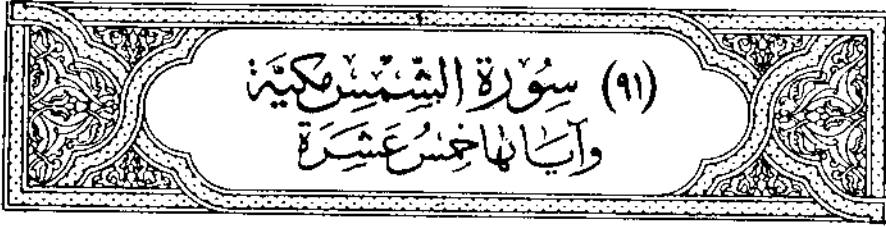 (٩١) سُورَة الشَّمْسِ مَكِيَّة
وَآيَاتُهَا خَمْسُ عَشَرَة